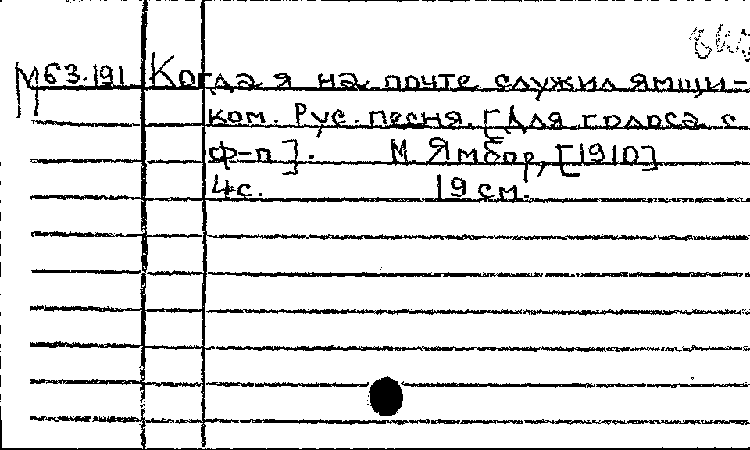 М63.191 Когда я на почте служил ямщи-
ком. Рус. песня. [Для голоса с
ф-п]. М. Ямбор, [1910]
4с. 19 см.